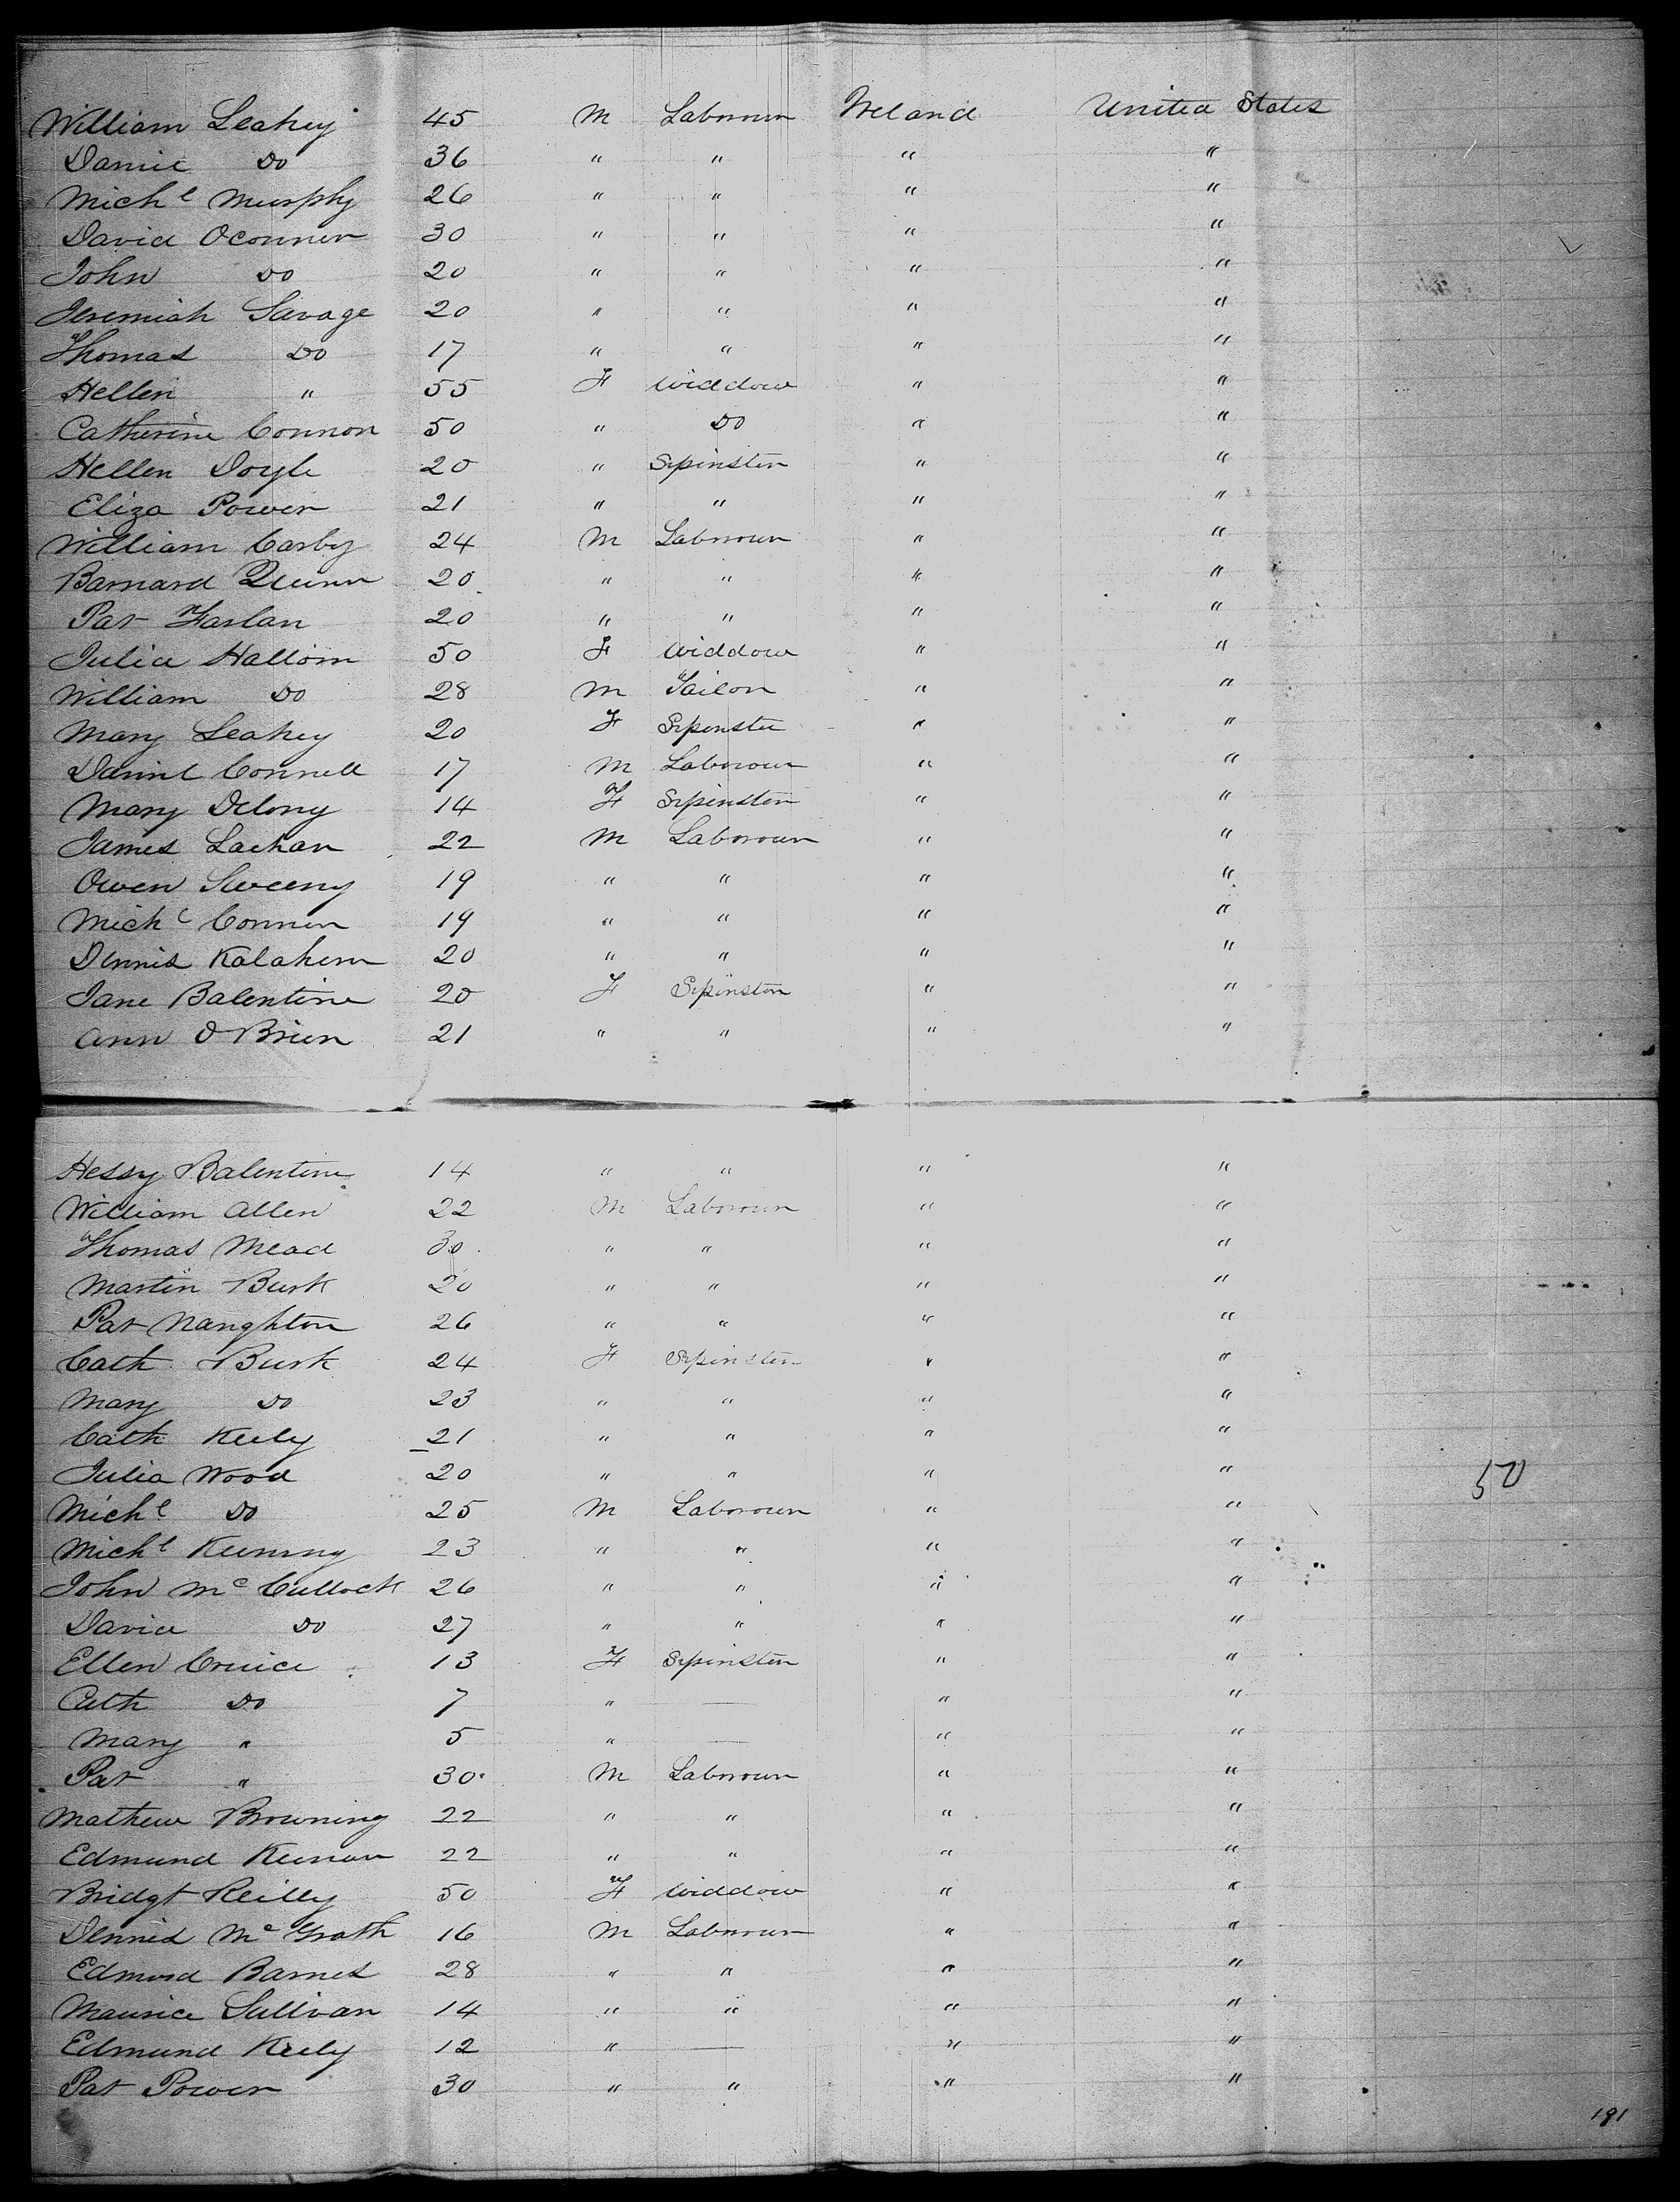 William Leahey 45 M Labrour Ireland United States
Daniel Do 36 " " " "
Mich l Murphy 26 " " " "
David Oconner 30 " " " "
John Do 20 " " " "
Jeremiah Savage 20 " " " "
Thomas Do 17 " " " "
Hellen " 55 F Widdow " "
Catherine Connor 50 " Do " "
Hellen Doyle 20 " Spinster " "
Eliza Power 21 " " " "
William Carby 24 M Labrour " "
Barnard Quinn 20 " " " "
Pat Farlan 20 " " " "
Julia Hallorn 50 F Widdow " "
William Do 28 M Tailor " "
Mary Leahey 20 F Spenster " "
Daniel Connell 17 M Labrour " "
Mary Delony 14 F Spinster " "
James Lachan 22 M Laborour " "
Owen Sweeny 19 " " " "
Mich l Conner 19 " " " "
Dennis Kalahern 20 " " " "
Jane Balentine 20 F Spinster " "
Ann O Brien 21 " " " "
Hessy Balentine 14 " " " "
William Allen 22 M Laborour " "
Thomas Mead 30 " " " "
Martin Burk 20 " " " "
Pat Naughton 26 " " " "
Cath Burk 24 F Spinster " "
Mary Do 23 " " " "
Cath Keely 21 " " " "
Julia Wood 20 " " " " 50
Mich l Do 25 M Laborour " "
Mich l Keening 23 " " " "
John Mc Cullock 26 " " " "
David Do 27 " " " "
Ellen Cruice 13 F Spinster " "
Cath Do 7 " — " "
Mary " 5 " — " "
Pat " 30 M Labrour " "
Mathew Browning 22 " " " "
Edmund Keenan 22 " " " "
Bridgt Reilly 50 F Widdow " "
Dennis Mc Grath 16 M Labrour " "
Edmond Barnes 28 " " " "
Maurice Sullivan 14 " " " "
Edmund Keely 12 " — " "
Pat Power 30 " " " "
191